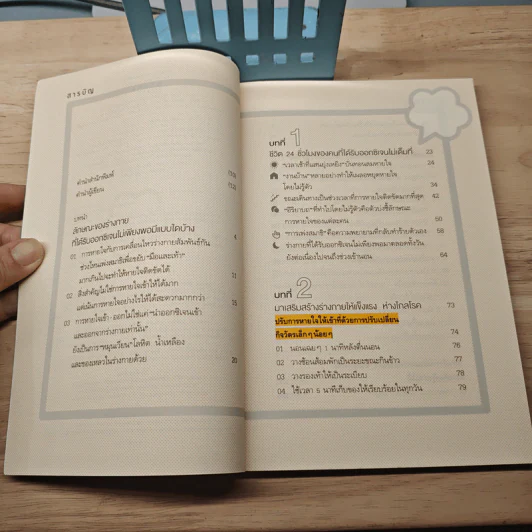 สารบัญ
คำนำสำนักพิมพ์
คำนำผู้เขียน
บทนำ
ลักษณะของร่างกาย
ที่ได้รับออกซิเจนไม่เพียงพอมีแบบใดบ้าง 4
01 การหายใจกับการเคลื่อนไหวร่างกายสัมพันธ์กัน
ช่วงไหนเพ่งสมาธิเพื่อขยับ "มือและเท้า"
มากเกินไปจะทำให้หายใจติดขัดได้
02 สิ่งสำคัญไม่ใช่การหายใจเข้าให้ได้มาก
แต่เน้นการหายใจอย่างไรให้ได้สะดวกมากกว่า
03 การหายใจเข้า-ออกไม่ใช่แค่ "นำออกซิเจนเข้า
และออกจากร่างกายเท่านั้น"
ยังเป็นการ "หมุนเวียน" โลหิต น้ำเหลือง
และของเหลวในร่างกายด้วย 20
บทที่ 1
ชีวิต 24 ชั่วโมงของคนที่ได้รับออกซิเจนไม่เต็มที่ 23
"เวลาเช้าที่แสนยุ่งเหยิง" บั่นทอนลมหายใจ 24
"งานบ้าน" หลายอย่างทำให้เผลอหยุดหายใจ
โดยไม่รู้ตัว 34
ขณะเดินทางเป็นช่วงเวลาที่การหายใจติดขัดมากที่สุด 42
"อิริยาบถ" ที่ทำไปโดยไม่รู้ตัวคือตัวบ่งชี้ลักษณะ
การหายใจของแต่ละคน 50
"การเพ่งสมาธิ" คือความพยายามที่กลับทำร้ายตัวเอง 58
ร่างกายที่ได้รับออกซิเจนไม่เพียงพอมาตลอดทั้งวัน
ยังต่อเนื่องไปจนถึงช่วงเข้านอน 64
บทที่ 2
มาเสริมสร้างร่างกายให้แข็งแรง ห่างไกลโรค 73
ปรับการหายใจให้เข้าที่ด้วยการปรับเปลี่ยน
กิจวัตรเล็ก ๆ น้อย ๆ 74
01 นอนเฉย ๆ 1 นาทีหลังตื่นนอน 76
02 วางช้อนส้อมพักเป็นระยะขณะกินข้าว 77
03 วางรองเท้าให้เป็นระเบียบ 78
04 ใช้เวลา 5 นาทีเก็บของให้เรียบร้อยในทุกวัน 79